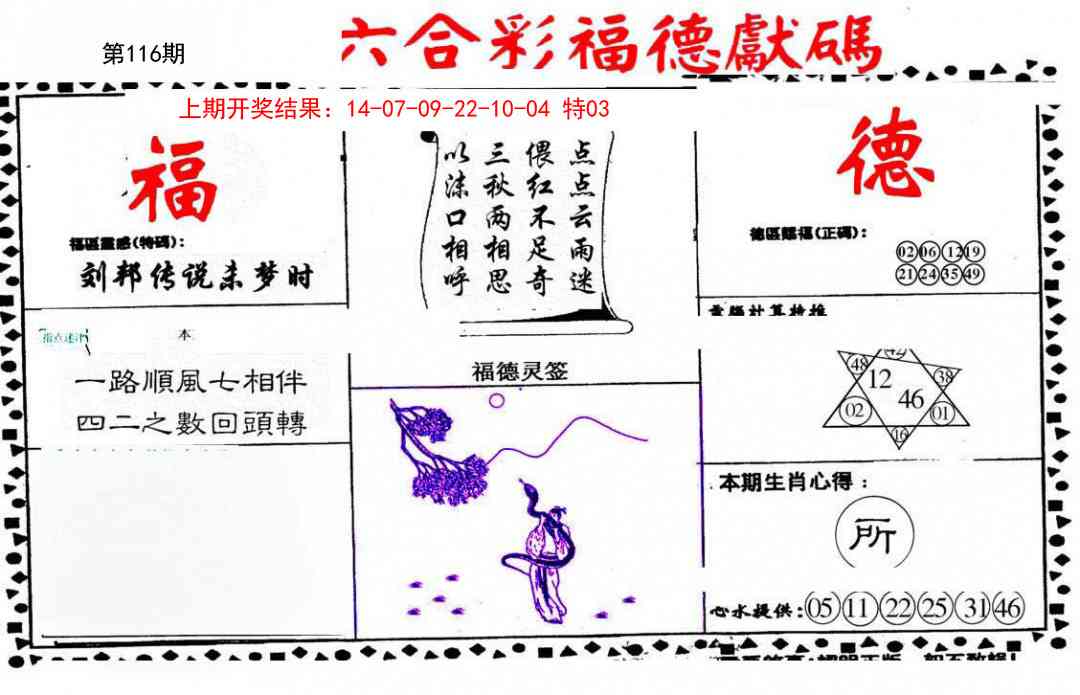 第116期
六合彩福德獻碼
上期开奖结果：14-07-09-22-10-04 特03
福
福區靈感(特碼)：
刘邦传说未梦时
点点云雨迷
偎红不足奇
三秋两相思
以沫口相呼
德
德區賜福(正碼)：
02 06 12 19
21 24 35 49
本
一路順風七相伴
四二之數回頭轉
福德灵签
48 42 38
12 46
02 01
16
本期生肖心得：
所
心水提供：05 11 22 25 31 46